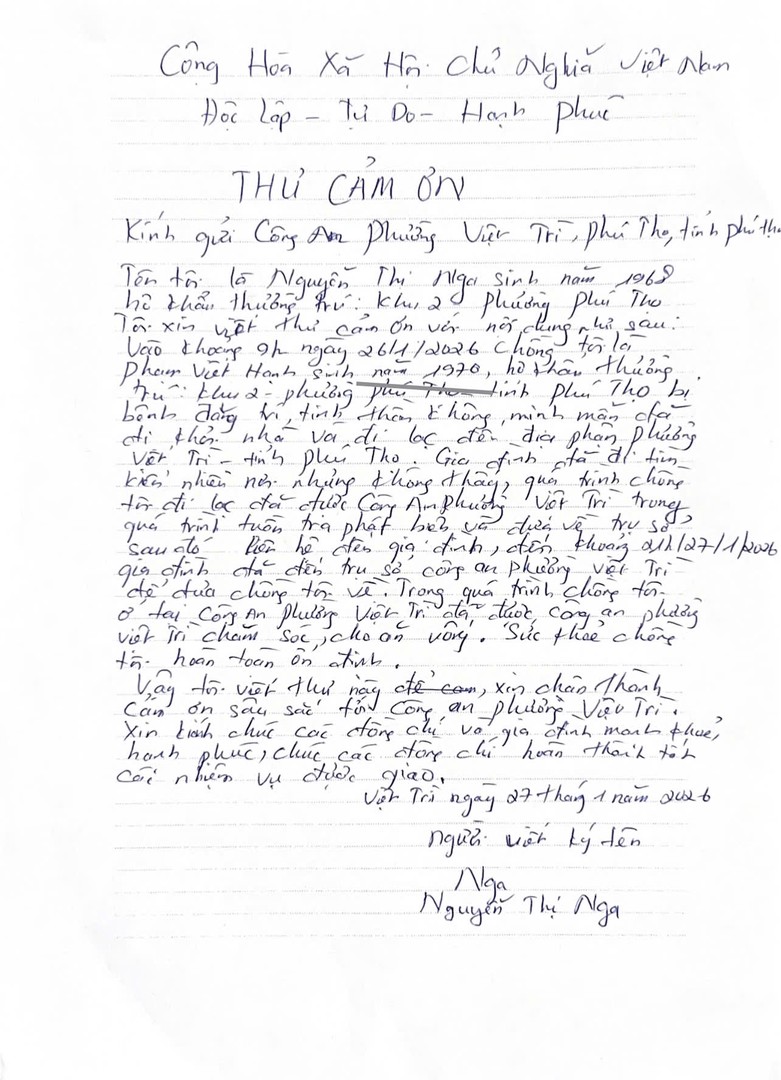 Cộng Hòa Xã Hội Chủ Nghĩa Việt Nam
Độc Lập - Tự Do - Hạnh Phúc
THƯ CẢM ƠN
Kính gửi Công An Phường Việt Trì, Phú Thọ, tỉnh phú thọ
Tên tôi là Nguyễn Thị Nga sinh năm 1968
hộ khẩu thường trú: Khu 2 phường phú Thọ
Tôi xin viết thư cảm ơn với nội dung như sau:
Vào khoảng 9h ngày 26/1/2026 chồng tôi là
Phạm Việt Hanh sinh năm 1970, hộ khẩu thường
trú: khu 2 - phường phú Thọ - tỉnh phú Thọ bị
bệnh đãng trí, tinh thần không minh mẫn đã
đi khỏi nhà và đi lạc đến địa phận phường
Việt Trì - tỉnh phú Thọ. Gia đình đã đi tìm
kiếm nhiều nơi nhưng không thấy, quá trình chồng
tôi đi lạc đã được Công An Phường Việt Trì trong
quá trình tuần tra phát hiện và đưa về trụ sở
sau đó liên hệ đến gia đình, đến khoảng 21h/27/1/2026
gia đình đã đến trụ sở công an phường việt Trì
để đưa chồng tôi về. Trong quá trình chồng tôi
ở tại Công An Phường Việt Trì đã được công an phường
việt Trì chăm sóc, cho ăn uống. Sức khoẻ chồng
tôi hoàn toàn ổn định.
Vậy tôi viết thư này để cảm, xin chân thành
cảm ơn sâu sắc tới Công an phường Việt Trì.
Xin kính chúc các đồng chí và gia đình mạnh khoẻ,
hạnh phúc, chúc các đồng chí hoàn thành tốt
các nhiệm vụ được giao.
Việt Trì ngày 27 tháng 1 năm 2026
người viết ký tên
Nga
Nguyễn Thị Nga